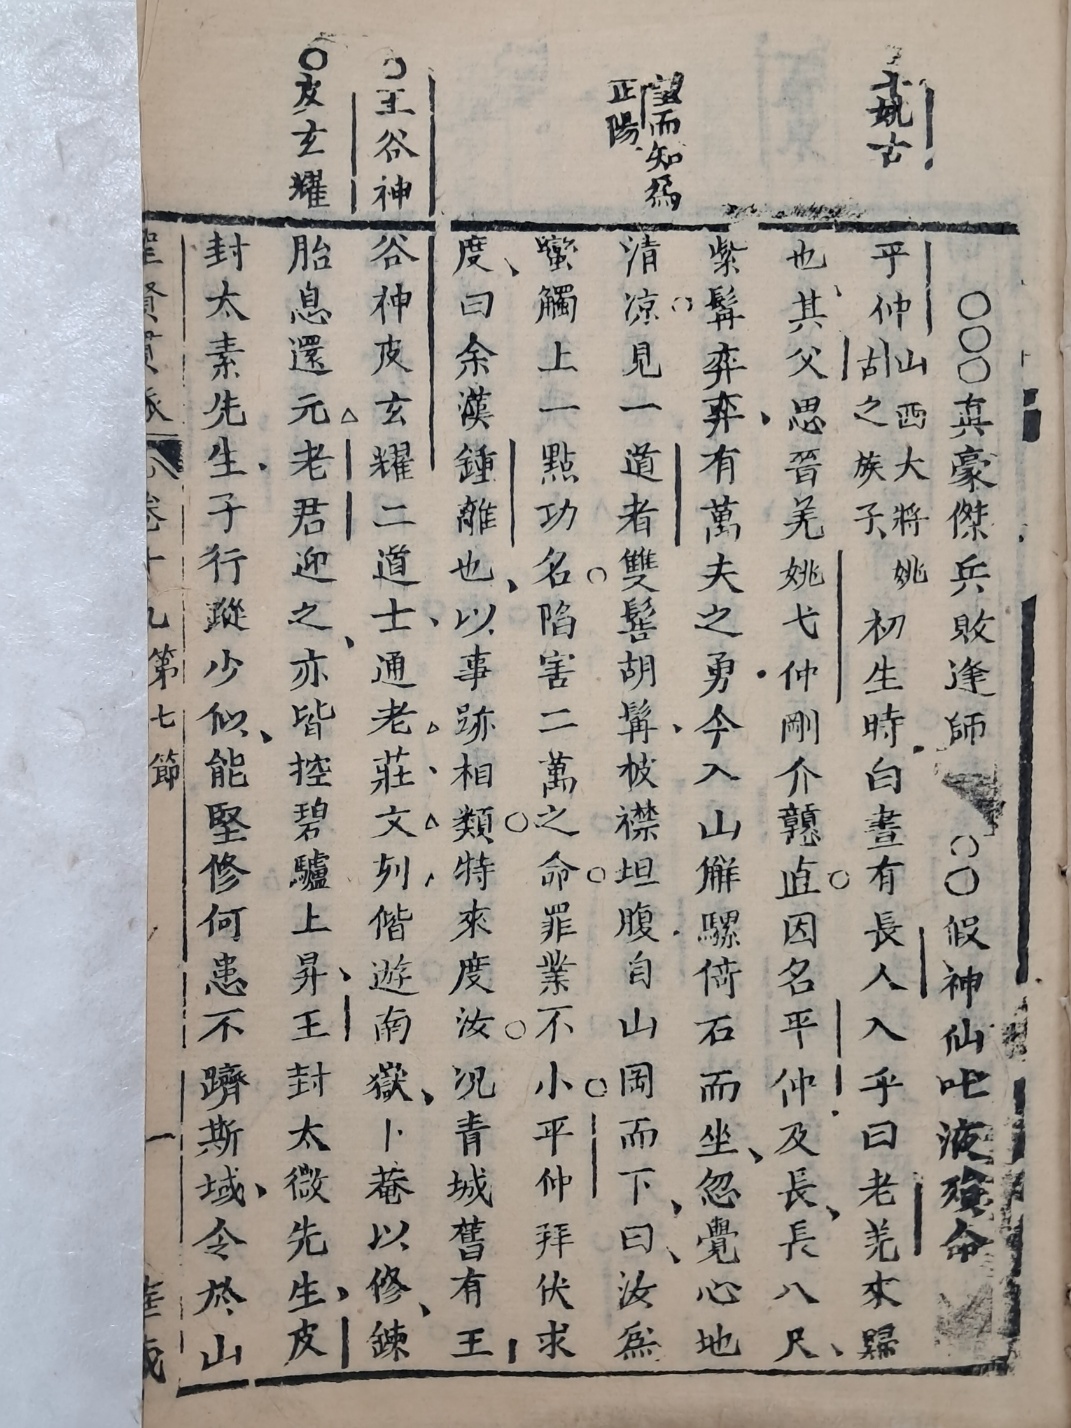 姚古
望而知爲
正陽
○王谷神
○皮玄耀
○○○真豪傑兵敗逢師　○○假神仙吐液殞命
平仲山西大將姚
古之族子初生時白晝有長人入乎曰老羌來歸
也其父思晉羌姚弋仲剛介戇直因名平仲及長長八尺
紫髯弈弈有萬夫之勇今入山解騾倚石而坐忽覺心地
清凉見一道者雙髻胡髯披襟坦腹自山岡而下曰汝爲
蠻觸上一點功名陷害二萬之命罪業不小平仲拜伏求
度曰余漢鍾離也以事跡相類特來度汝况青城舊有王
谷神皮玄耀二道士通老莊文列偕遊南嶽卜菴以修鍊
胎息還元老君迎之亦皆控碧驢上昇王封太微先生皮
封太素先生子行蹤少似能堅修何患不躋斯域令於山
卷十九第七節　一